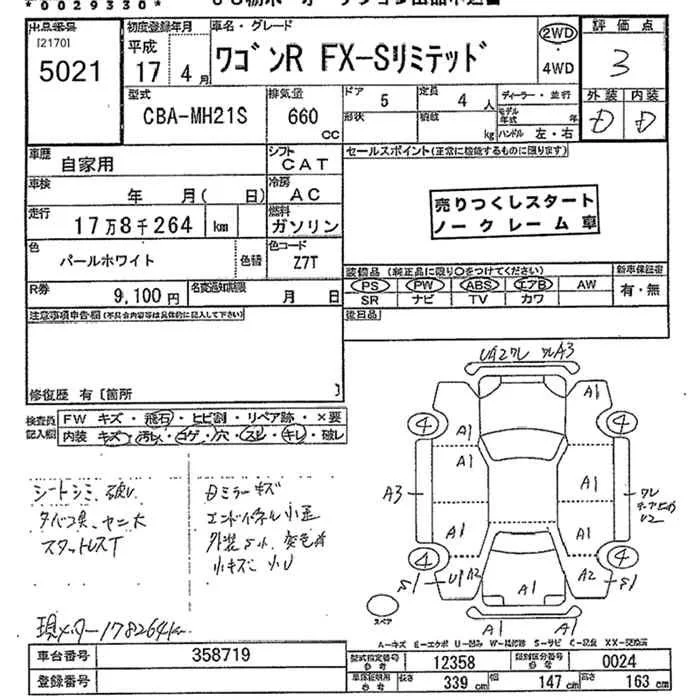 *0029330*
出品番号
[2170]
5021
初度登録年月
平成
17年 4月
車名・グレード
ワゴンR FX-Sリミテッド
2WD
・
4WD
評価点
3
外装 内装
D D
型式
CBA-MH21S
排気量
660
cc
ドア
5
定員
4人
形状
積載
kg
ディーラー・並行
モデル年式 年
ハンドル 左・右
車歴
自家用
シフト
CAT
セールスポイント(正常に検能するものに限ります)
車検
年 月( 日)
冷房
AC
走行
17万8千264 km
燃料
ガソリン
売りつくしスタート
ノークレーム車
色
パールホワイト
色替
色コード
Z7T
装備品(純正品に限り〇をつけてください)
PS PW ABS エアB AW
SR ナビ TV カワ
新車保証書
有・無
R券
9,100円
名変通知期限
月 日
後日品
注意事項申告欄(不具合内容等は具体的に記入して下さい)
修復歴 有〔箇所 〕
検査員
記入欄
FW キズ・飛石・ヒビ割・リペア跡・×要
内装 キズ・汚レ・コゲ・穴・スレ・キレ・破レ
シートシミ、破レ
スタットレスT
Dミラーキズ
エンドパネル小歪
小キズ 小U
現メーター178264km
U2ワレ ワレA3
A1 A1
4 4
A1 A1
A3
A1 A1
ワレ
U2
4 4
S1 A1 A2 S1
A1 A1
スペア
A-キズ E-エクボ U-凹み W-補修跡 S-サビ C-腐食 XX-交換済
車台番号
358719
登録番号
型式指定番号
参考
12358
類別区分番号
参考
0024
車検証明用
参考
長さ
339 cm
幅
147 cm
高さ
163 cm